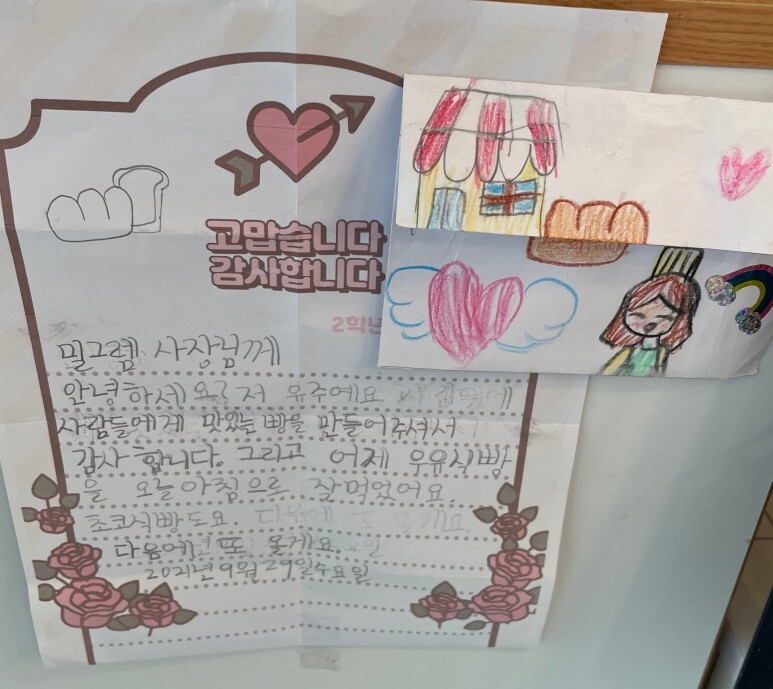 고맙습니다
감사합니다
2학년
밀그렘 사장님께
안녕하세요? 저 유주예요.
사람들에게 맛있는 빵을 만들어주셔서
감사합니다. 그리고 어제 우유식빵
을 오늘 아침으로 잘먹었어요.
초코식빵도요. 다음에 또 올게요
다음에 또 올게요.
2021년 9월 29일수요일